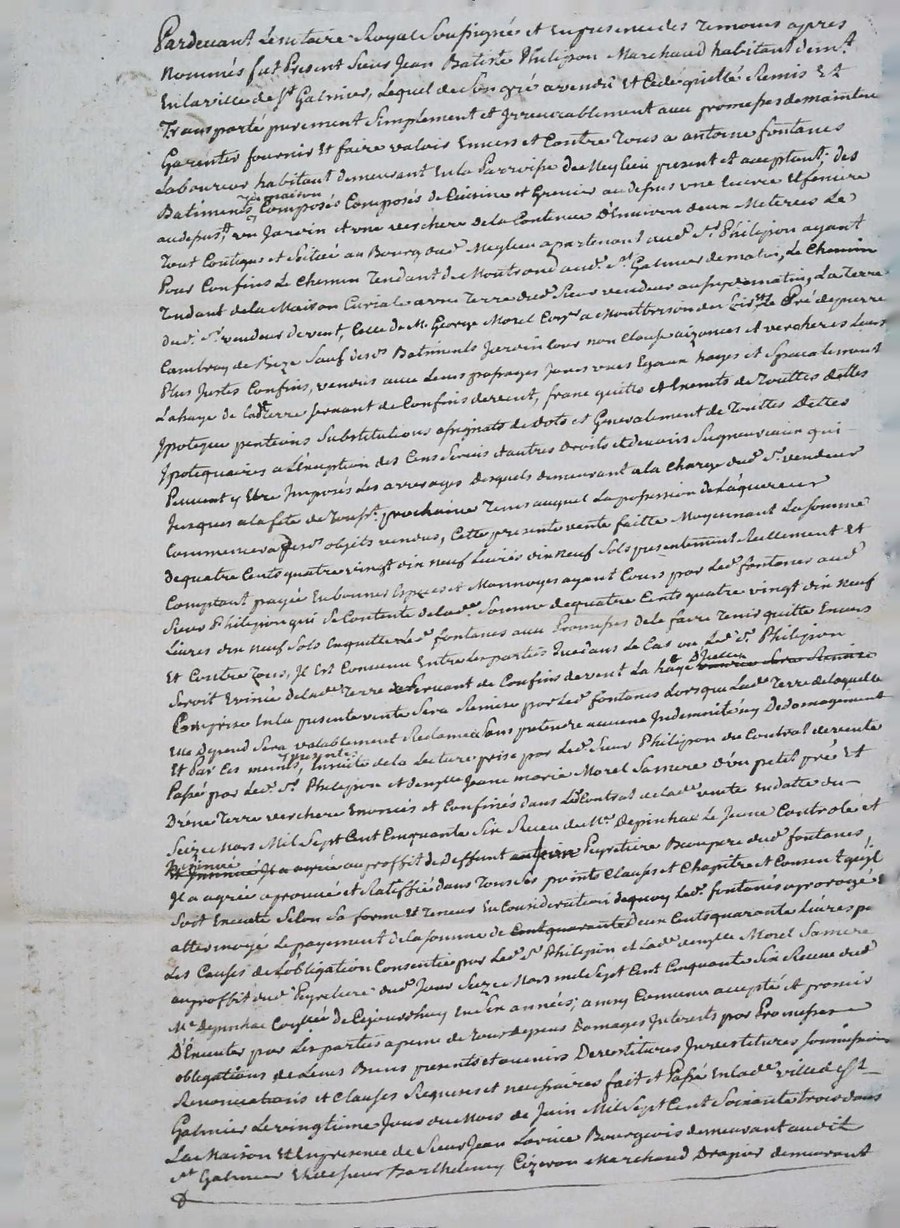 Pardevant Le notaire Royal Soussignés et En presence des temoins apres
Nommés fut Present Sieur Jean Batiste Philipon Marchand habitant demt
En la ville de St Galmier, Lequel de Son gré a vendu Et Cede quitté Remis Et
Transporté purement Simplement et Irrevocablement avec promesses de maintenir
Garentir fournir Et faire valoir Envers et Contre Tous a antoine fontanes
Laboureur habitant demeurant En la Parroisse de Meylieu present et acceptant, des
Batiments Composés de Cuisine et Grenier au dessus une Ecurie Et feniere
au dessus, un Jardin et une verchere de la Contenue D'Environ deux Meterées Le
Tout Contigus et Scitué au Bourg dud. Meylieu apartenant aud. Sr Philipon ayant
Pour Confins Le Chemin Tendant de Montrond aud. St Galmier de matin, Le Chemin
Tendant de la Maison Curiale a une Terre dud. Sieur vendeur au La Terre
dud. Sr vendeur de vent, Celle de Mr George Morel a Montbrison de Le Pré de pierre
de Bize Sauf desd. Batiments Jardin Cour aizances et vercheres Leurs
Plus Justes Confins, vendus avec Leurs passages Egaux hayes et Specialement
La haye de la terre servant de Confins de vent, franc quitte et Exempts de Touttes dettes
Ipoteques pentions Substitutions de dots et Generalement de Touttes Dettes
Ipotequaires a L'exception des Cens Servis et autres Droits et devoirs Seigneuriaux qui
Peuvent y Etre Imposés Les arrerages Desquels demeurant a la Charge dud. Sr vendeur
Jusques a la fete de Touss.t prochaine Tems auquel La possession de L'aquereur
Commencera desd. objets vendus, Cette presente vente faitte Moyennant La Somme
de quatre Cents quatre vingt dix neuf Livres dix neuf Sols presentement Reellement et
Comptant payée En bonnes Especes et Monnoyes ayant Cours par Led. fontanes aud.
Sieur Philipon qui Se Contente de lad. Somme de quatre Cents quatre vingt dix neuf
Livres dix neuf Sols En quitte Led. fontanes avec Promesses de Le faire Tenir quitte Envers
Et Contre Tous, Il Est Convenu Entre Les parties que dans Le Cas ou Led. Sr Philipon
Seroit Evincé de lad. Terre Servant de Confins de vent La haye D'Icelle
Comprise En la presente vente Sera Remise par Led. fontanes Lorsque Lad. Terre de laquelle
Elle Depend Sera valablement Reclamée Sans pretendre aucune Indemnité ny Dedomagement
Et Par Ces memes presentes, Ensuite de la Lecture prise par Led. Sieur Philipon du Contrat de vente
Passé par Led. Sr Philipon et demlle Jeanne marie Morel Sa mere D'un petit pré Et
D'une Terre verchere Enoncés et Confinés dans Led. Contrat de lad. vente en datte du
Seize Mars Mil Sept Cent Cinquante Six Receu de Me Depinhac Le Jeune Controlé et
Insinué Il a agréé au proffit de Deffunt antoine Peyretiere Beaupere dud. fontanes,
Il a agréé aprouvé et Ratiffié dans Tous Ses points Clauses et Chapitre et Consent qu'il
Soit Executé Selon Sa forme Et Teneur En Consideration de quoy Led. fontanes a prorogé et
attermoyé Le payement de la Somme de deux Cents quarante Livres
Les Causes de L'obligation Consentie par Led. Sr Philipon et Lad. demlle Morel Sa mere
au proffit dud. Peyretiere dud. Jour Seize Mars mil Sept Cent Cinquante Six Receue dud.
Me Depinhac de Cejourd'huy En Six années; ainsy Convenu accepté et promis
D'Executer par Les parties a peine de Tous depens Domages Interets par Promesses
obligations de Leurs Biens presents et avenirs Devestitures Investitures Soumissions
Renonciations et Clauses Requises et necessaires fait et Passé En lad. ville de St
Galmier Le vingtieme Jour du Mois de Juin Mil Sept Cent Soixante trois dans
La Maison Et En presence de Sieur Jean Bourgeois demeurant audit
St Galmier Et de Sieur Barthelemy Marchand Drapier demeurant